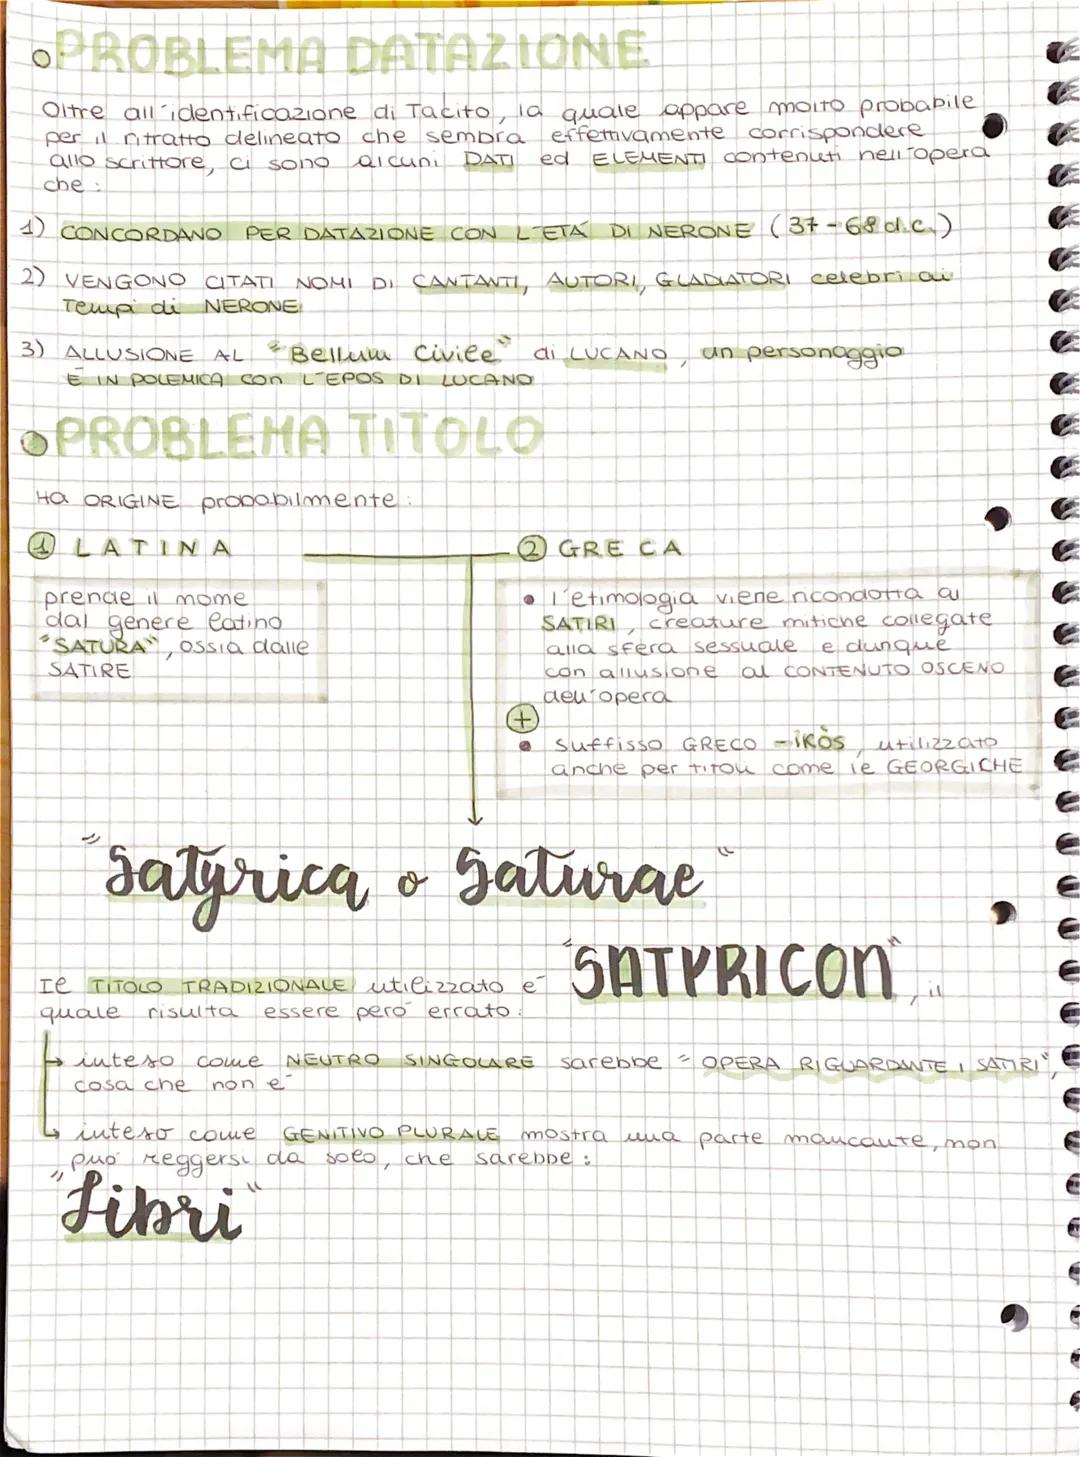 PROBLEMA DATAZIONE
Oltre all'identificazione di Tacito, la quale appare molto probabile
per il ritratto delineato che sembra effettivamente corrispondere
allo scrittore, ci sono alcuni DATI ed ELEMENTI contenuti nell'opera
che:
1) CONCORDANO PER DATAZIONE CON L'ETÀ DI NERONE (37-68 d.C.)
2) VENGONO CITATI NOMI DI CANTANTI, AUTORI, GLADIATORI celebri ai
Tempi di NERONE
3) ALLUSIONE AL "Bellum Civile" di LUCANO, un personaggio
È IN POLEMICA con L'EPOS DI LUCANO
PROBLEMA TITOLO
Ha ORIGINE probabilmente:
1 LATINA 2 GRECA
prende il nome
dal genere latino
"SATURA", ossia dalle
SATIRE
• l'etimologia viene ricondotta ai
SATIRI, creature mitiche collegate
alla sfera sessuale e dunque
con allusione al CONTENUTO OSCENO
dell'opera
+
• suffisso GRECO -ikòs, utilizzato
anche per titoli come le GEORGICHE
"Satyrica o Saturae"
Il TITOLO TRADIZIONALE utilizzato è "SATYRICON", il
quale risulta essere però errato:
↳ inteso come NEUTRO SINGOLARE sarebbe "OPERA RIGUARDANTE I SATIRI",
cosa che non è
↳ inteso come GENITIVO PLURALE mostra una parte mancante, non
può reggersi da solo, che sarebbe:
"Libri"